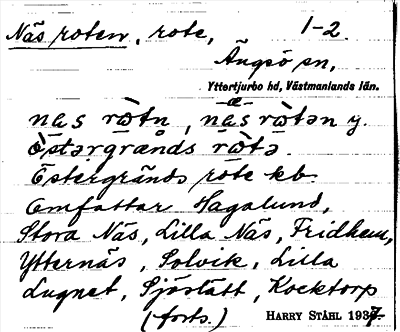 Näs roten, rote, 1-2.
Ängsö sn,
Yttertjurbo hd, Västmanlands län.
nas rotn, näs rotən y.
Östərgrands rotə
Östergränds rote kb.
Omfattar Hagalund,
Stora Näs, Lilla Näs, Fridhem,
Ytternäs, Solvik, Lilla
Lugnet, Sjöstätt, Kocktorp
(forts.) HARRY STÅHL 1937.